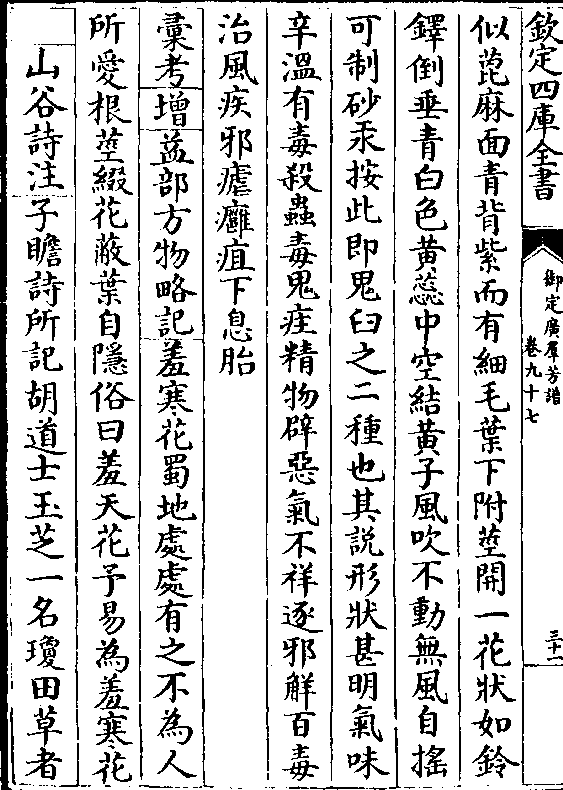 欽定四庫全書
御定廣羣芳譜
卷九十七
三十一
似蓖麻面青背紫而有細毛葉下附莖開一花狀如鈴
鐸倒垂青白色黃蕊中空結黃子風吹不動無風自搖
可制砂汞按此即鬼臼之二種也其說形狀甚明氣味
辛溫有毒殺蟲毒鬼疰精物辟惡氣不祥逐邪解百毒
治風疾邪瘧癰疽下息胎
彚考增益部方物略記羞寒花蜀地處處有之不為人
所愛根莖綴花蔽葉自隱俗曰羞天花予易為羞寒花
山谷詩注子瞻詩所記胡道士玉芝一名瓊田草者